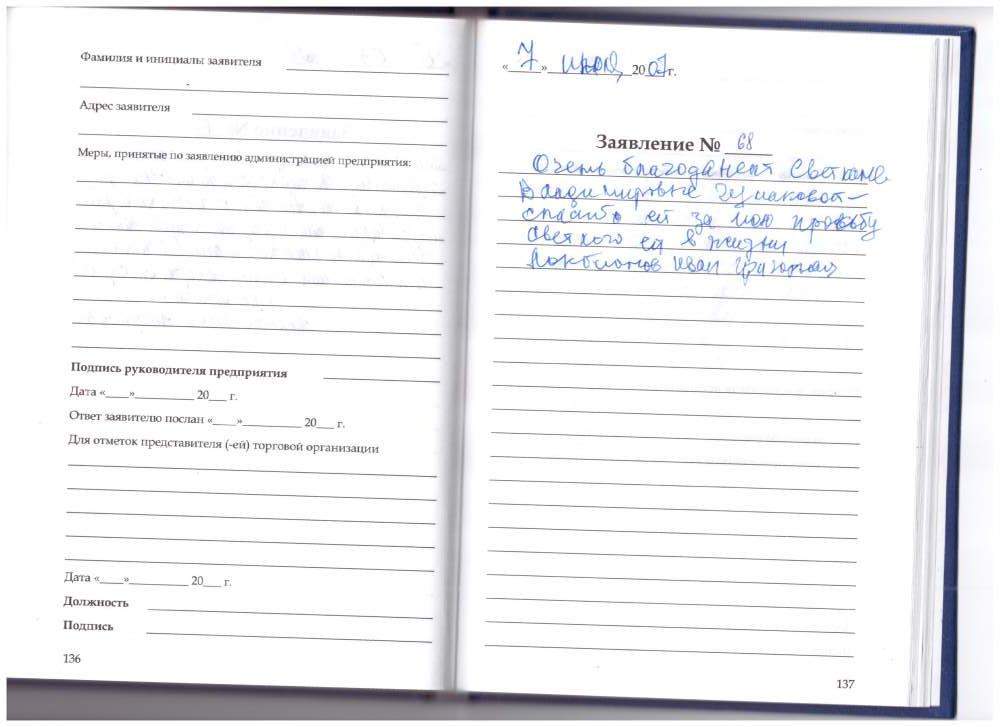 Фамилия и инициалы заявителя
Адрес заявителя
Меры, принятые по заявлению администрацией предприятия:
Подпись руководителя предприятия
Дата «____»__________ 20___ г.
Ответ заявителю послан «____»__________ 20___ г.
Для отметок представителя (-ей) торговой организации
Дата «____»__________ 20___ г.
Должность
Подпись
136
«7» 2007 г.
Заявление № 68
Очень благодарен Светлане
Владимировне
спасибо ей за мою просьбу
ей в жизни
Иван
137